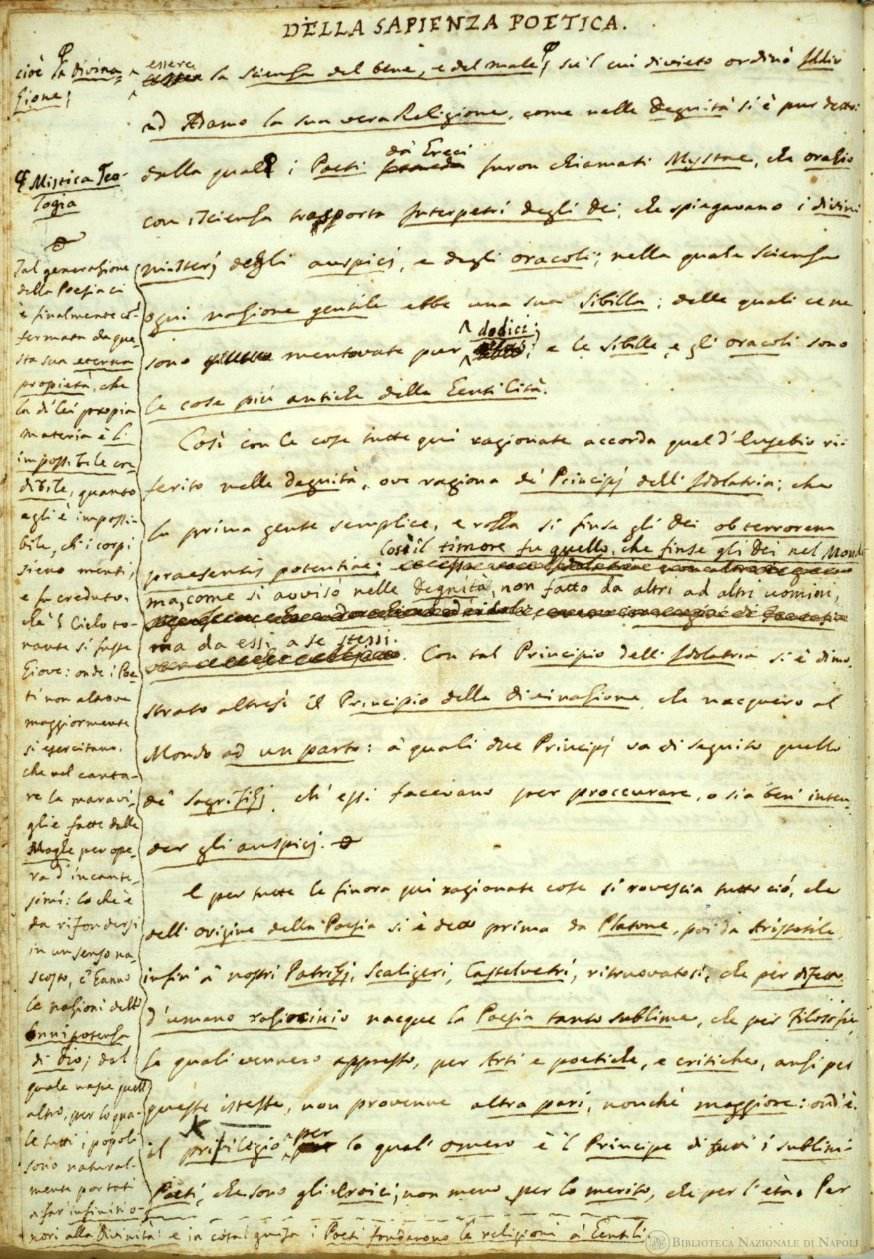 DELLA SAPIENZA POETICA.
essere la scienza del bene, e del male, su'l cui divieto ordinò Iddio
ad Adamo la sua vera Religione, come nelle Degnità si è pur detto:
dalla quale i Poeti da' Greci furon chiamati Mystae, che Orazio
con iscienza trasporta Interpetri degli dei, che spiegavano i divini
misterj degli auspicj, e degli oracoli; nella quale scienza
ogni nazione gentile ebbe una sua Sibilla; delle quali ce ne
sono mentovate pur dodici; e le Sibille, e gli oracoli sono
le cose più antiche della Gentilità.
Così con le cose tutte qui ragionate accorda quel d'Eusebio ri-
ferito nelle degnità, ove ragiona de' Principj dell' Idolatria; che
la prima gente semplice, e rozza si finse gli dei ob terrorem
praesentis potentiae; Così il timore fu quello, che finse gli dei nel Mondo
ma, come si avvisò nelle Degnità, non fatto da altri ad altri uomini,
ma da essi a se stessi. Con tal Principio dell' Idolatria si è dimo-
strato altresì il Principio della divinazione, che nacquero al
Mondo ad un parto: a' quali due Principj va di seguito quello
de' Sagrifizj, ch'essi facevano per proccurare, o sia ben' inten-
der gli auspicj.
E per tutte le finora qui ragionate cose si rovescia tutto ciò, che
dell' origine della Poesia si è detto prima da Platone, poi da Aristotile,
infin' a' nostri Patrizj, Scaligeri, Castelvetri, ritruovatosi, che per difetto
d'umano raziocinio nacque la Poesia tanto sublime, che per Filosofie,
le quali vennero appresso, per Arti e poetiche, e critiche, anzi per
queste istesse, non provenne altra pari, nonché maggiore: ond' è
il privilegio, per lo qual' Omero è 'l Principe di tutti i sublimi
Poeti, che sono gli Eroici, non meno per lo merito, che per l'età. Per
cioè la divina-
zione;
Mistica Teo-
logia
Tal generazione
della Poesia ci
è finalmente co'-
fermata da que-
sta sua eterna
propietà, che
la di lei propia
materia è l'
impossibile cre-
dibile, quanto
egli è impossi-
bile, ch'i corpi
sieno menti,
e fu creduto,
che 'l Cielo to-
nante si fusse
Giove: onde i Poe-
ti non altrove
maggiormente
si esercitano,
che nel canta-
re le maravi-
glie fatte dalle
Maghe per ope-
ra d'incante-
simi: lo che è
da rifondersi
in un senso na-
scosto, c'hanno
le nazioni dell'
onnipotenza
di Dio; dal
quale nasce quell'
altro, per lo qua-
le tutti i popoli
sono natural-
mente portati
a far infiniti o-
nori alla Divinità: e in cotal guisa i Poeti fondarono le religioni a' Gentili.
BIBLIOTECA NAZIONALE DI NAPOLI